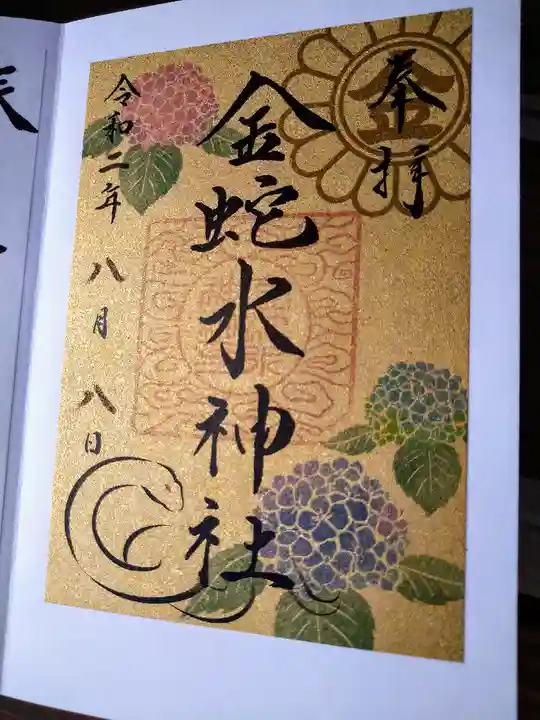 奉拝
金
金蛇水神社
令和二年 八月 八日